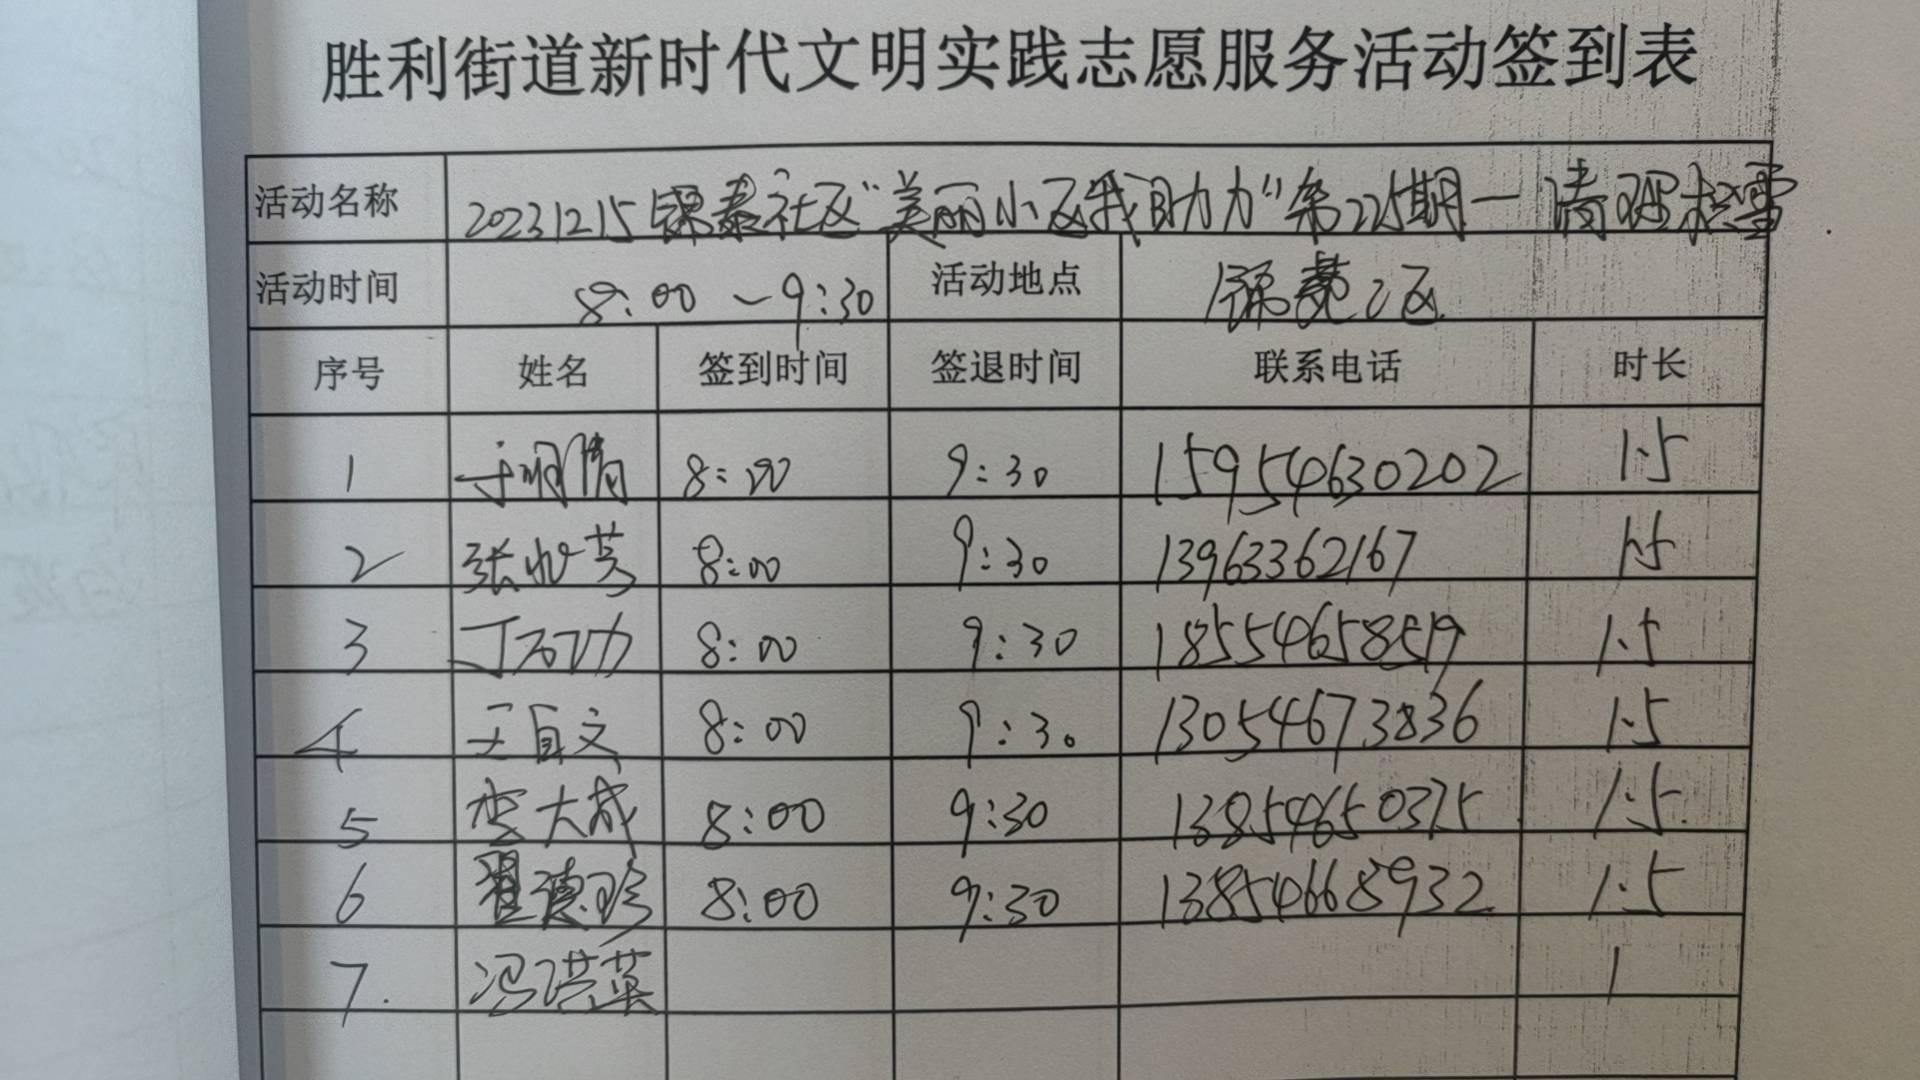 胜利街道新时代文明实践志愿服务活动签到表
活动名称 20231215锦泰社区“美丽小区我助力”第225期一清理积雪
活动时间 8:00～9:30 活动地点 锦 二区
序号 姓名 签到时间 签退时间 联系电话 时长
1 于明倩 8:00 9:30 15954630202 1.5
2 张 英 8:00 9:30 13963362167 1.5
3 丁 功 8:00 9:30 18554658519 1.5
4 王 文 8:00 9:30 13054673836 1.5
5 李大成 8:00 9:30 13854650375 1.5
6 翟德珍 8:00 9:30 13854668932 1.5
7. 冯洪英 1